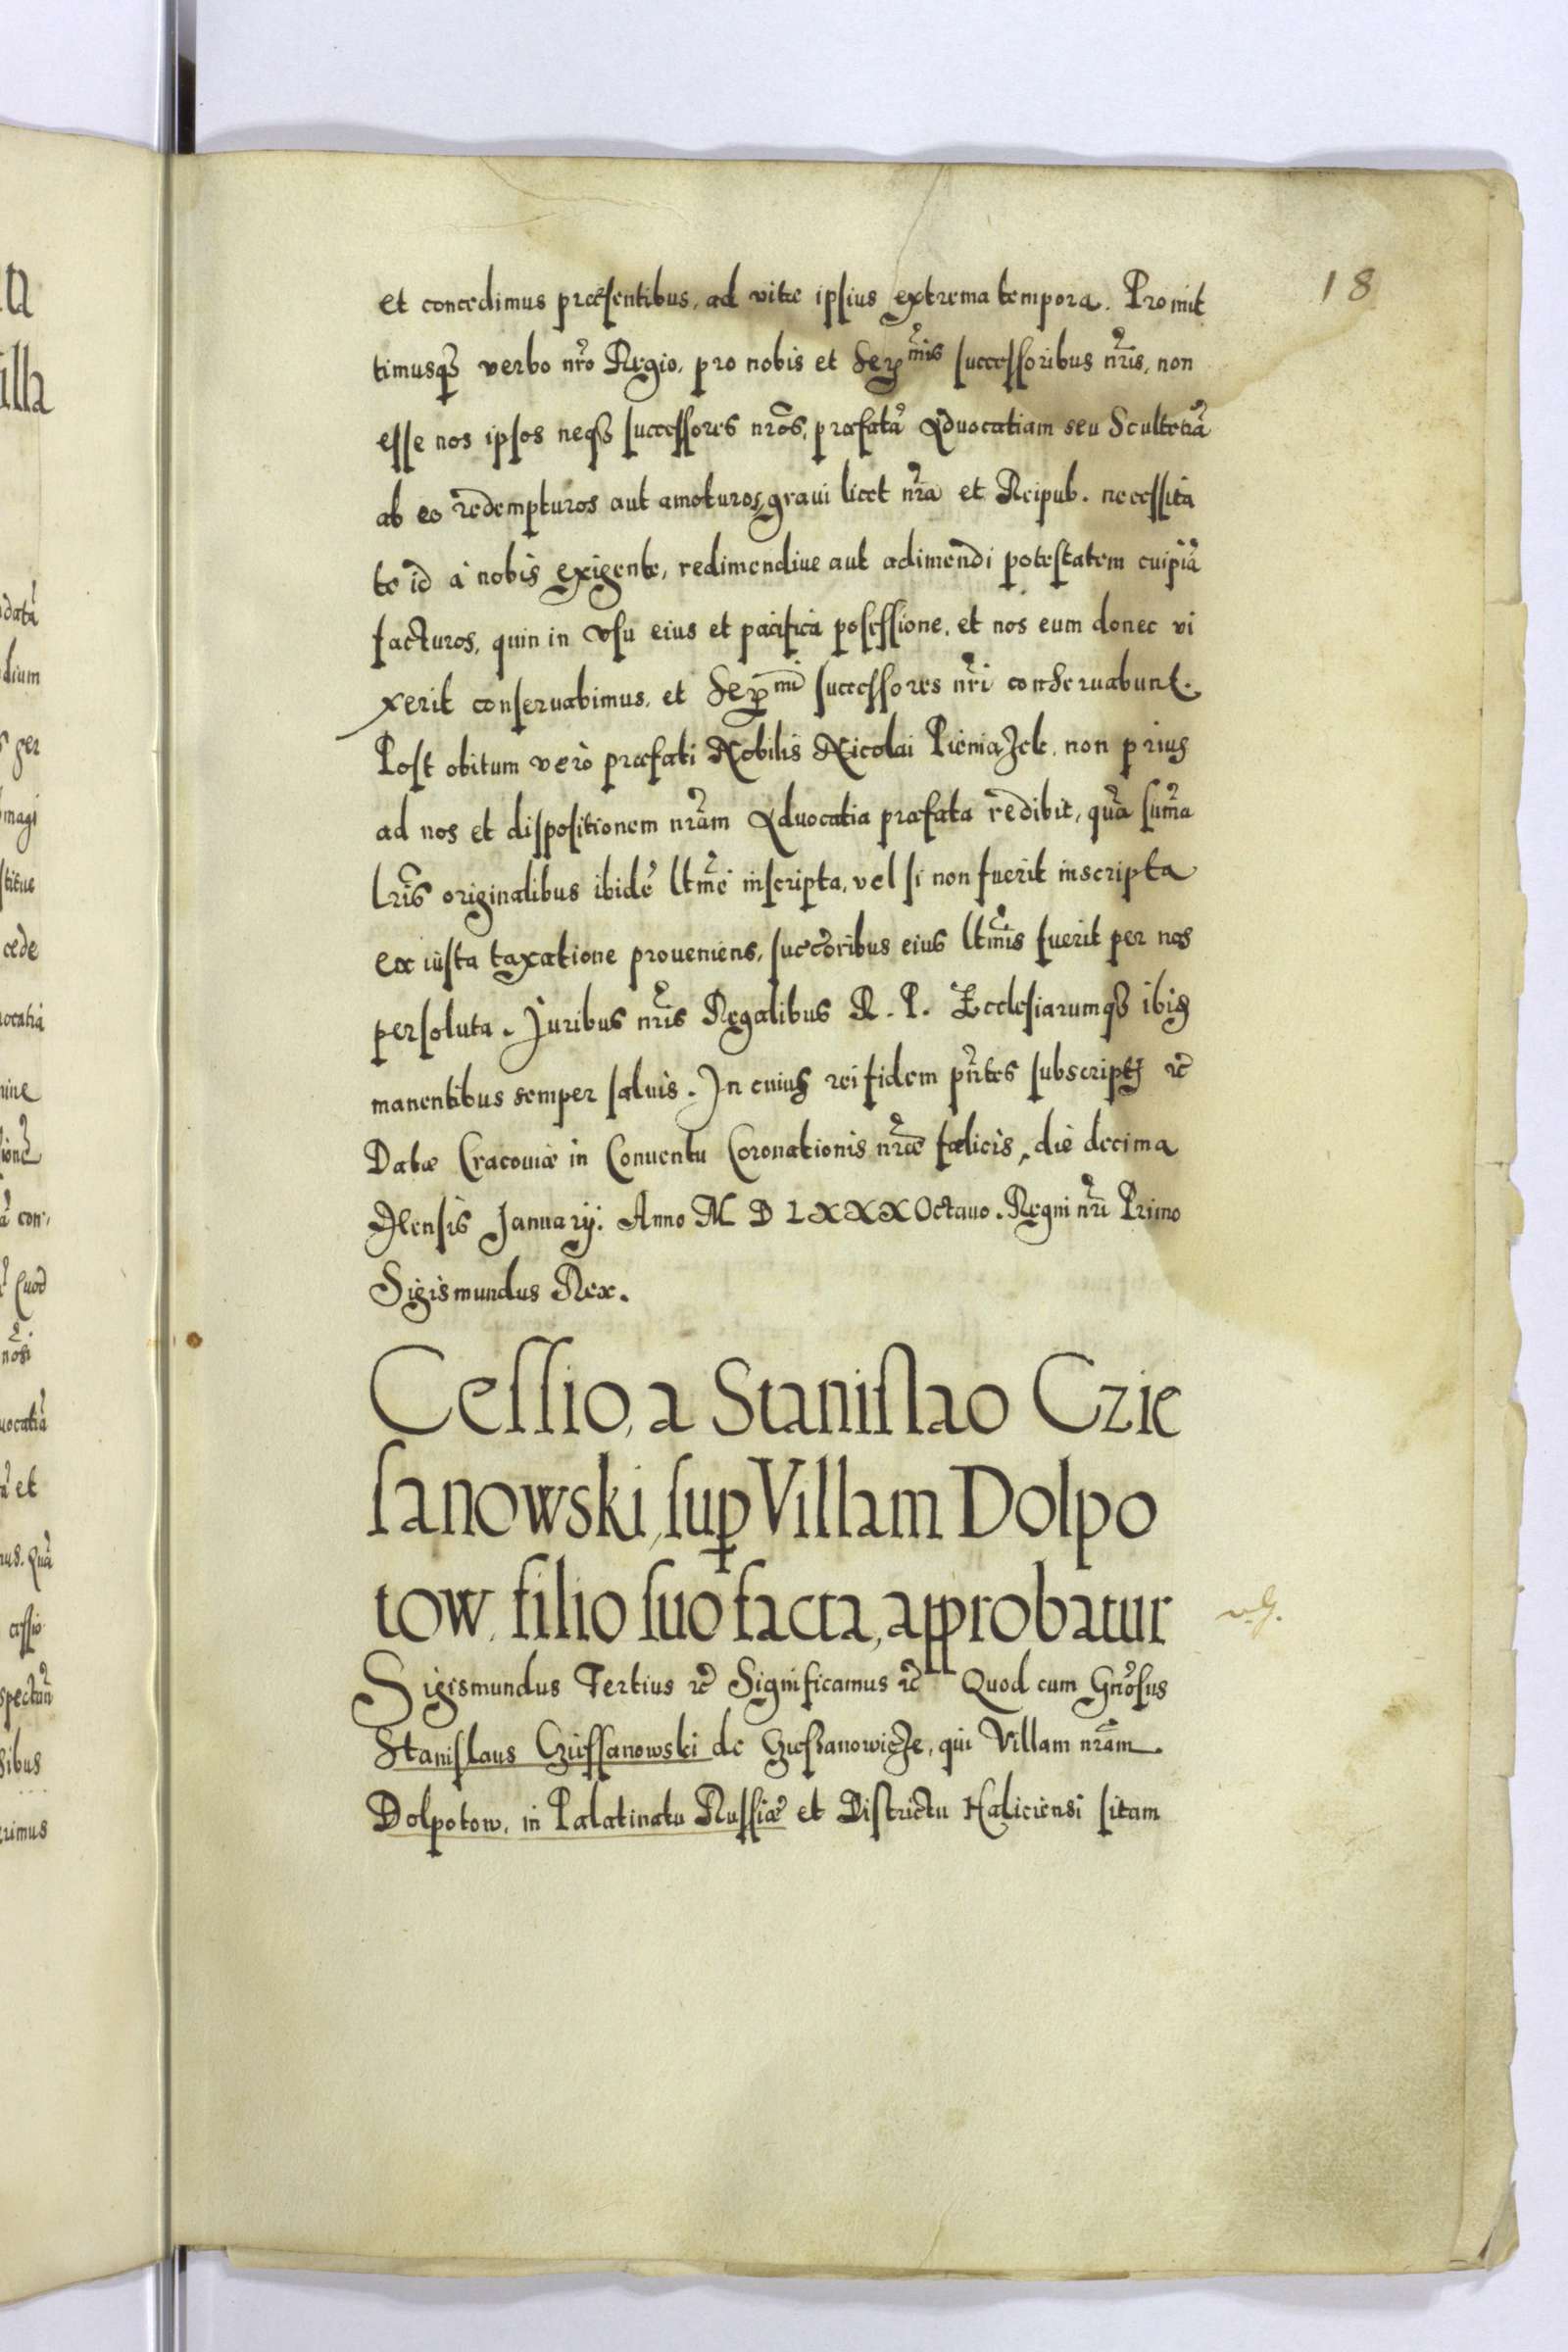 18
et concedimus præsentibus, ad vitæ ipsius extrema tempora. Promit
timusqȝ verbo nr̃o Regio, pro nobis et Serᵐⁱˢ successoribus nr̃is, non
esse nos ipsos neqȝ successores nr̃os, præfatã Aduocatiam seu Scultetiã
ab eo redempturos aut amoturos, graui licet nr̃a et Reipub. necessita
te id à nobis exigente, redimendiue aut adimendi potestatem cuipiã
facturos, quin in vsu eius et pacifica possessione, et nos eum donec vi
xerit conseruabimus, et Serᵐⁱ successores nr̃i conseruabunt.
Post obitum verò præfati Nobilis Nicolai Pieniazek, non prius
ad nos et dispositionem nr̃am Aduocatia præfata redibit, quã sum̃a
lr̃is originalibus ibidẽ ltm̃e inscripta, vel si non fuerit inscripta
ex iusta taxatione proueniens, succ̃oribus eius ltm̃is fuerit per nos
persoluta. Juribus nr̃is Regalibus R. P. Ecclesiarumqȝ ibiꝫ
manentibus semper saluis. In cuius rei fidem pñtes subscriptj &c̃
Datæ Cracouiæ in Conuentu Coronationis nr̃æ fælicis, die decima
Mensis Januarÿ. Anno M D LXXX Octauo. Regni nr̃i Primo
Sigismundus Rex.
Cessio, a Stanislao Czie
sanowski, suꝑ Villam Dolpo
tow, filio suo facta, approbatur
v. G.
Sigismundus Tertius &c̃ Significamus &c̃ Quod cum Gnr̃osus
Stanislaus Cziessanowski de Cziessanowicze, qui Villam nr̃am
Dolpotow, in Palatinatu Russiæ et Districtu Haliciensi sitam